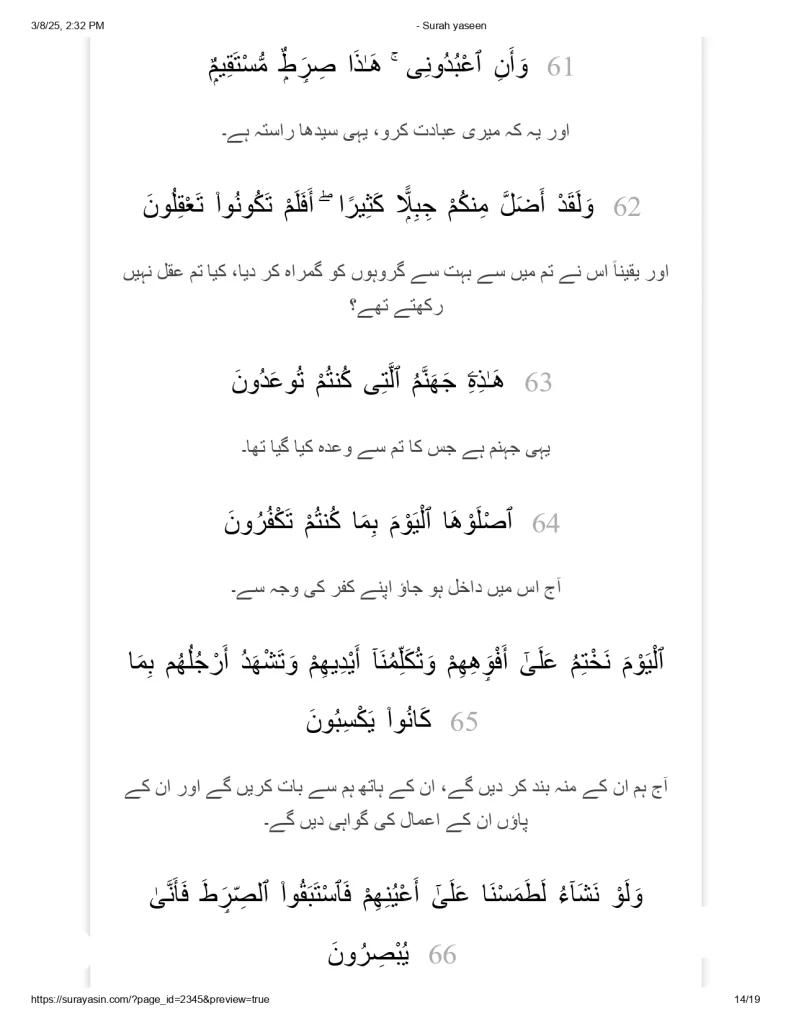 3/8/25, 2:32 PM - Surah yaseen
وَأَنِ ٱعْبُدُونِى ۚ هَـٰذَا صِرَٰطٌ مُّسْتَقِيمٌ 61
اور یہ کہ میری عبادت کرو، یہی سیدھا راستہ ہے۔
وَلَقَدْ أَضَلَّ مِنكُمْ جِبِلًّا كَثِيرًا ۖ أَفَلَمْ تَكُونُوا۟ تَعْقِلُونَ 62
اور یقیناً اس نے تم میں سے بہت سے گروہوں کو گمراہ کر دیا، کیا تم عقل نہیں
رکھتے تھے؟
هَـٰذِهِۦ جَهَنَّمُ ٱلَّتِى كُنتُمْ تُوعَدُونَ 63
یہی جہنم ہے جس کا تم سے وعدہ کیا گیا تھا۔
ٱصْلَوْهَا ٱلْيَوْمَ بِمَا كُنتُمْ تَكْفُرُونَ 64
آج اس میں داخل ہو جاؤ اپنے کفر کی وجہ سے۔
ٱلْيَوْمَ نَخْتِمُ عَلَىٰٓ أَفْوَٰهِهِمْ وَتُكَلِّمُنَآ أَيْدِيهِمْ وَتَشْهَدُ أَرْجُلُهُم بِمَا
كَانُوا۟ يَكْسِبُونَ 65
آج ہم ان کے منہ بند کر دیں گے، ان کے ہاتھ ہم سے بات کریں گے اور ان کے
پاؤں ان کے اعمال کی گواہی دیں گے۔
وَلَوْ نَشَآءُ لَطَمَسْنَا عَلَىٰٓ أَعْيُنِهِمْ فَٱسْتَبَقُوا۟ ٱلصِّرَٰطَ فَأَنَّىٰ
يُبْصِرُونَ 66
https://surayasin.com/?page_id=2345&preview=true 14/19